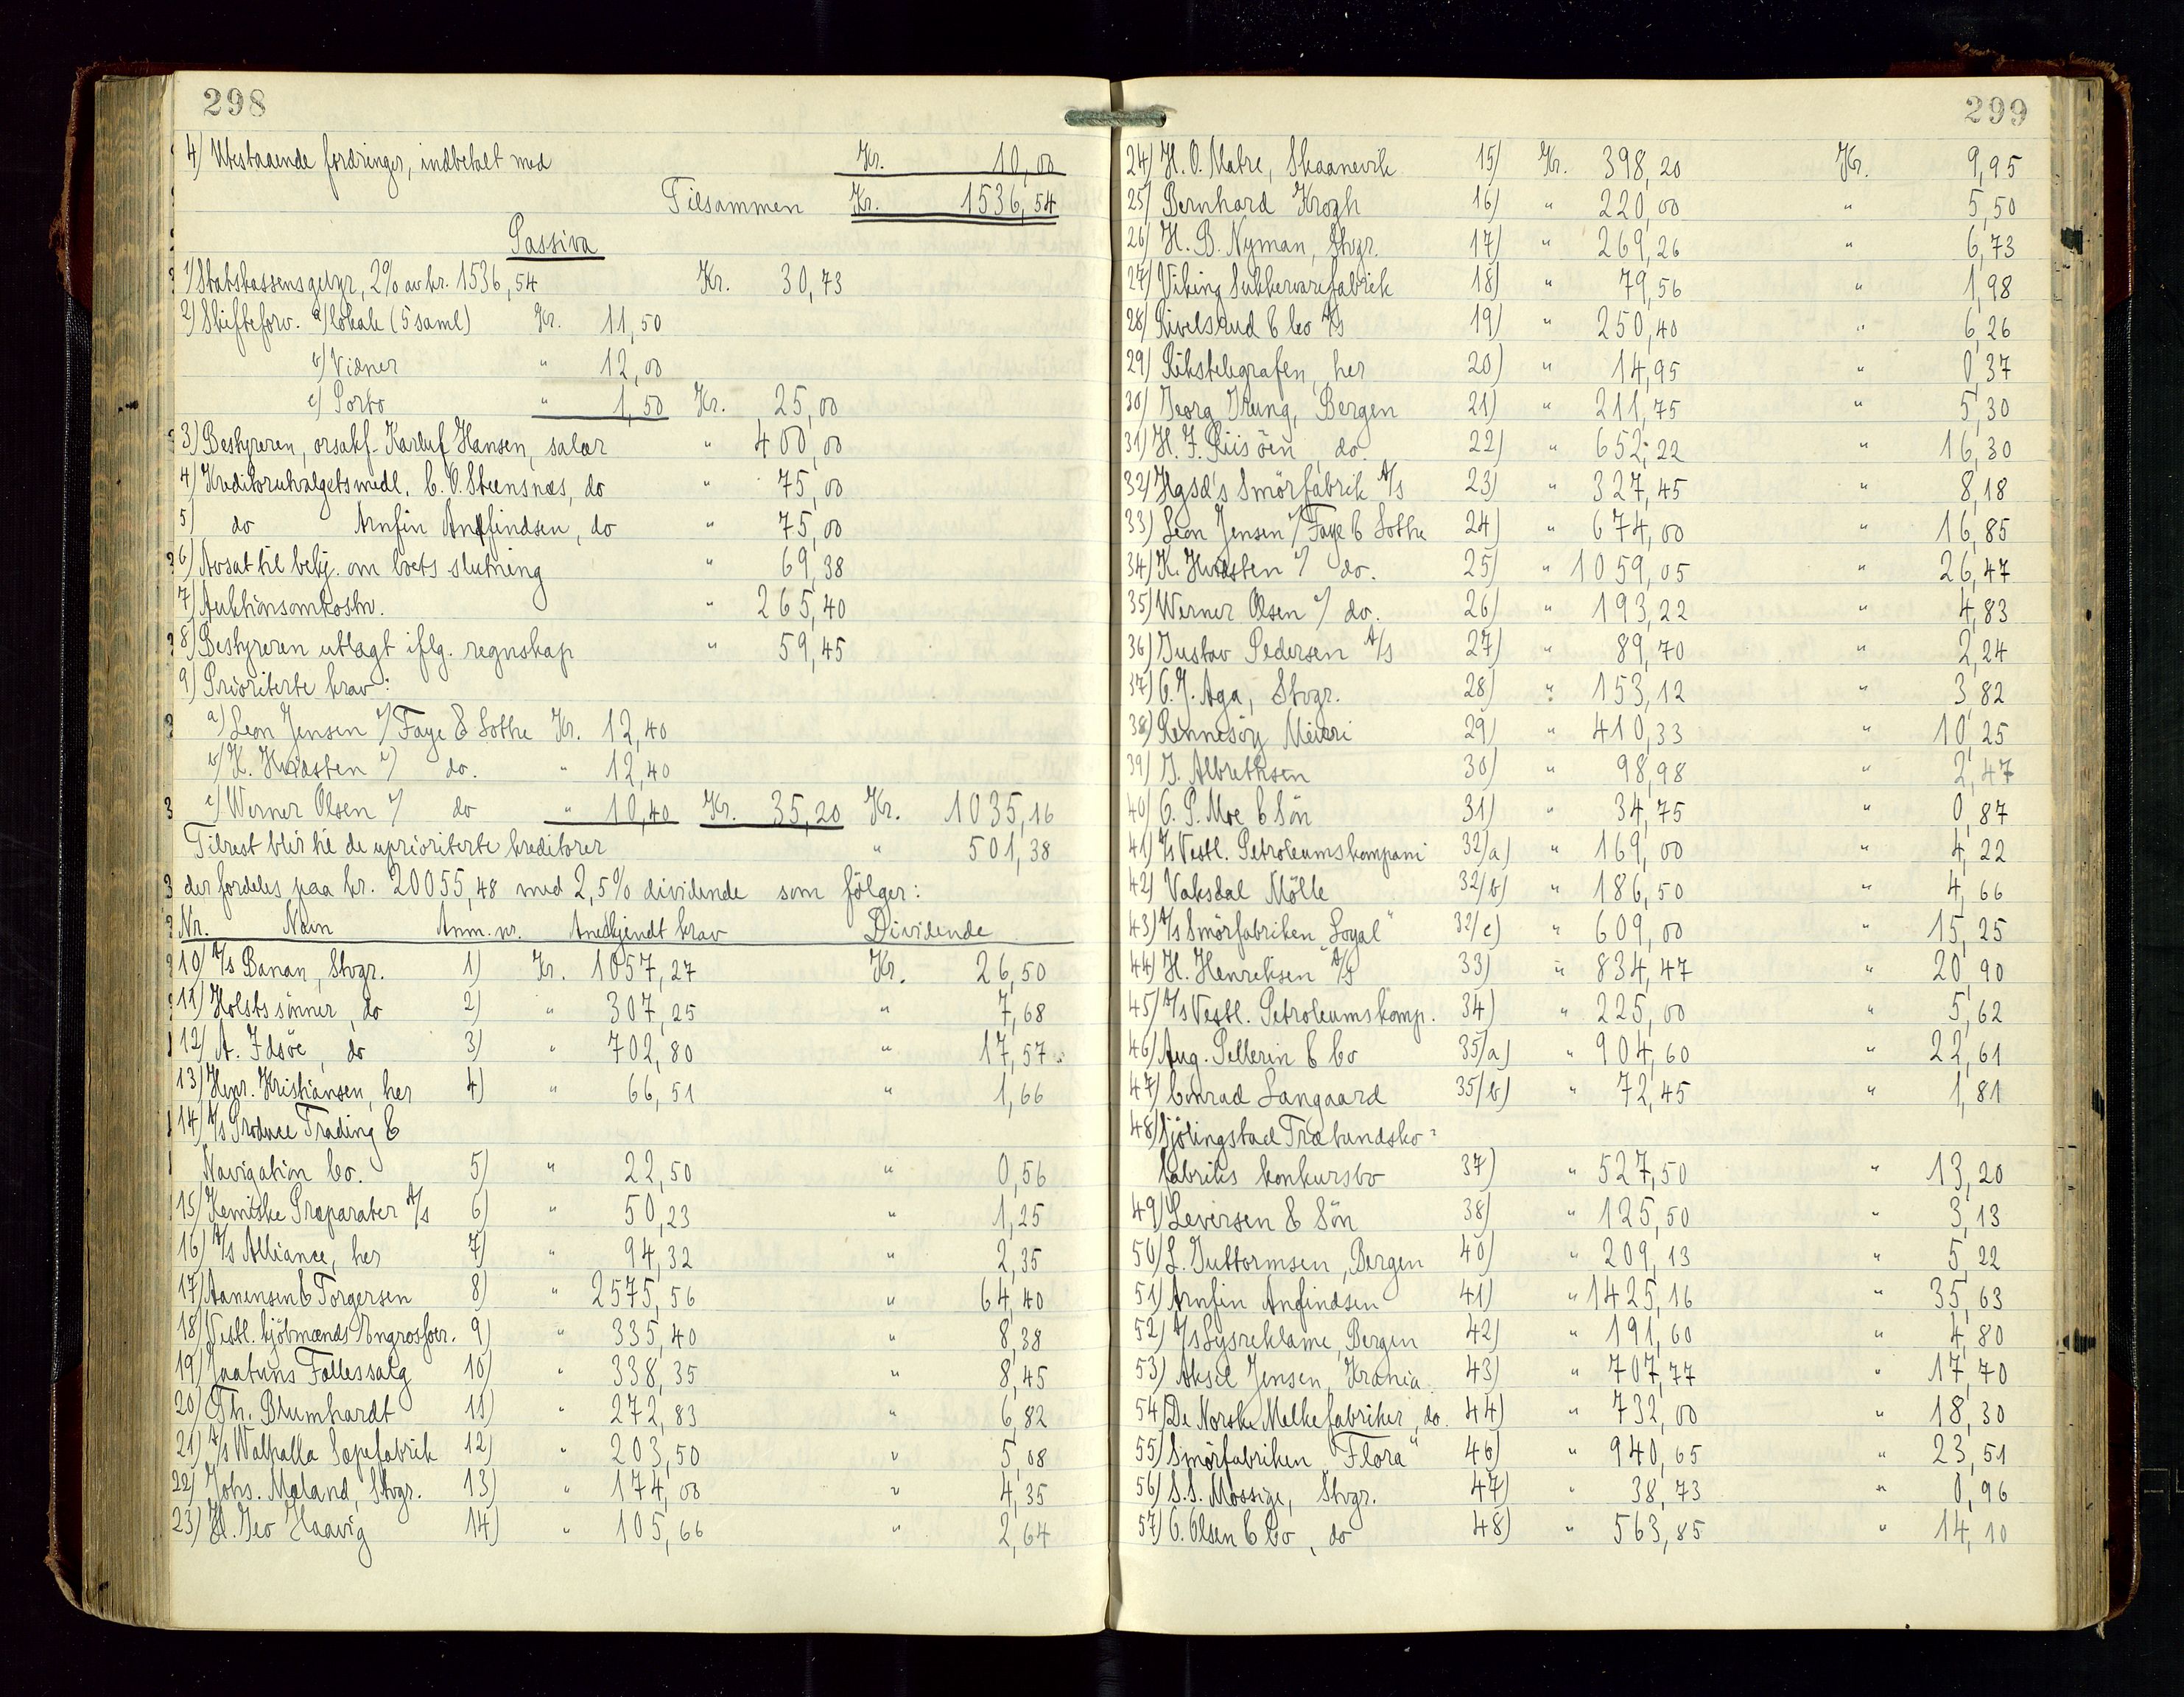 298
4) Utestaaende fordringer, indbetalt med Kr. 10,00
Tilsammen Kr. 1536,54
Passiva
1) Statskassens gebyr, 2% av kr. 1536,54 Kr. 30,73
2) Skifteforv. a) lokale (5 saml) Kr. 11,50
b) Vidner " 12,00
c) Porto " 1,50 Kr. 25,00
3) Bestyreren, orsakf. Karluf Hansen, salær " 400,00
4) Kreditorutvalgetsmedl. C. O. Steensnæs, do " 75,00
5) do Arnfin Anfindsen, do " 75,00
6) Avsat til bekj. om boets slutning " 69,38
7) Auktionsomkostn. " 265,40
8) Bestyreren utlagt iflg. regnskap " 59,45
9) Prioriterte krav:
a) Leon Jensen v/ Faye & Lothe Kr. 12,40
b) K. Hvidsten v/ do. " 12,40
c) Werner Olsen v/ do " 10,40 Kr. 35,20 Kr. 1035,16
Tilrest blir til de uprioriterte kreditorer " 501,38
der fordeles paa kr. 20055,48 med 2,5% dividende som følger:
Nr. Navn Anm. nr. Anerkjendt krav Dividende
10) A/s Banan, Stvgr. 1) Kr. 1057,27 Kr. 26,50
11) Holsts sönner, do 2) " 307,25 " 7,68
12) A. Idsöe, do 3) " 702,80 " 17,57
13) Henr. Kristiansen, her 4) " 66,51 " 1,66
14) A/s Produce Trading &
Navigation Co. 5) " 22,50 " 0,56
15) Kemiske Præparater A/s 6) " 50,23 " 1,25
16) A/s Alliance, her 7) " 94,32 " 2,35
17) Aanensen & Torgersen 8) " 2575,56 " 64,40
18) Vestl. kjöbmænds Engrosfor. 9) " 335,40 " 8,38
19) Jaatuns Fællessalg 10) " 338,35 " 8,45
20) Th. Blumhardt 11) " 272,83 " 6,82
21) A/s Walhalla Sæpefabrik 12) " 203,50 " 5,08
22) Johs. Meland, Stvgr. 13) " 174,00 " 4,35
23) H. Geo Haavig 14) " 105,66 " 2,64
299
24) H. O. Matre, Skaanevik 15) Kr. 398,20 Kr. 9,95
25) Bernhard Krogh 16) " 220,00 " 5,50
26) H. B. Nyman, Stvgr. 17) " 269,26 " 6,73
27) Viking Sukkervarefabrik 18) " 79,56 " 1,98
28) Rivelsrud & Co A/s 19) " 250,40 " 6,26
29) Rikstelegrafen, her 20) " 14,95 " 0,37
30) Georg Grung, Bergen 21) " 211,75 " 5,30
31) H. F. Riisöen do. 22) " 652,22 " 16,30
32) Hgsd's Smörfabrik A/s 23) " 327,45 " 8,18
33) Leon Jensen v/ Faye & Lothe 24) " 674,00 " 16,85
34) K. Hvidsten v/ do. 25) " 1059,05 " 26,47
35) Werner Olsen v/ do. 26) " 193,22 " 4,83
36) Gustav Pedersen A/s 27) " 89,70 " 2,24
37) O. J. Aga, Stvgr. 28) " 153,12 " 3,82
38) Rennesöy Meieri 29) " 410,33 " 10,25
39) J. Albrethsen 30) " 98,98 " 2,47
40) O. P. Moe & Sön 31) " 34,75 " 0,87
41) A/s Vestl. Petroleumskompani 32/a) " 169,00 " 4,22
42) Vaksdal Mölle 32/b) " 186,50 " 4,66
43) A/s Smörfabriken "Loyal" 32/c) " 609,00 " 15,25
44) H. Henriksen A/s 33) " 834,47 " 20,90
45) A/s Vestl. Petroleumskomp. 34) " 225,00 " 5,62
46) Aug. Pellerin & Co 35/a) " 904,60 " 22,61
47) Conrad Langaard 35/b) " 72,45 " 1,81
48) Sjölingstad Træbundsko=
fabriks konkursbo 37) " 527,50 " 13,20
49) Leversen & Sön 38) " 125,50 " 3,13
50) L. Guttormsen, Bergen 40) " 209,13 " 5,22
51) Arnfin Anfindsen 41) " 1425,16 " 35,63
52) A/s Lysreklame, Bergen 42) " 191,60 " 4,80
53) Aksel Jensen, Krania. 43) " 707,77 " 17,70
54) De Norske Melkefabriker, do. 44) " 732,00 " 18,30
55) Smörfabriken "Flora" 46) " 940,65 " 23,51
56) S. S. Mossige, Stvgr. 47) " 38,73 " 0,96
57) O. Olsen & Co, do 48) " 563,85 " 14,10